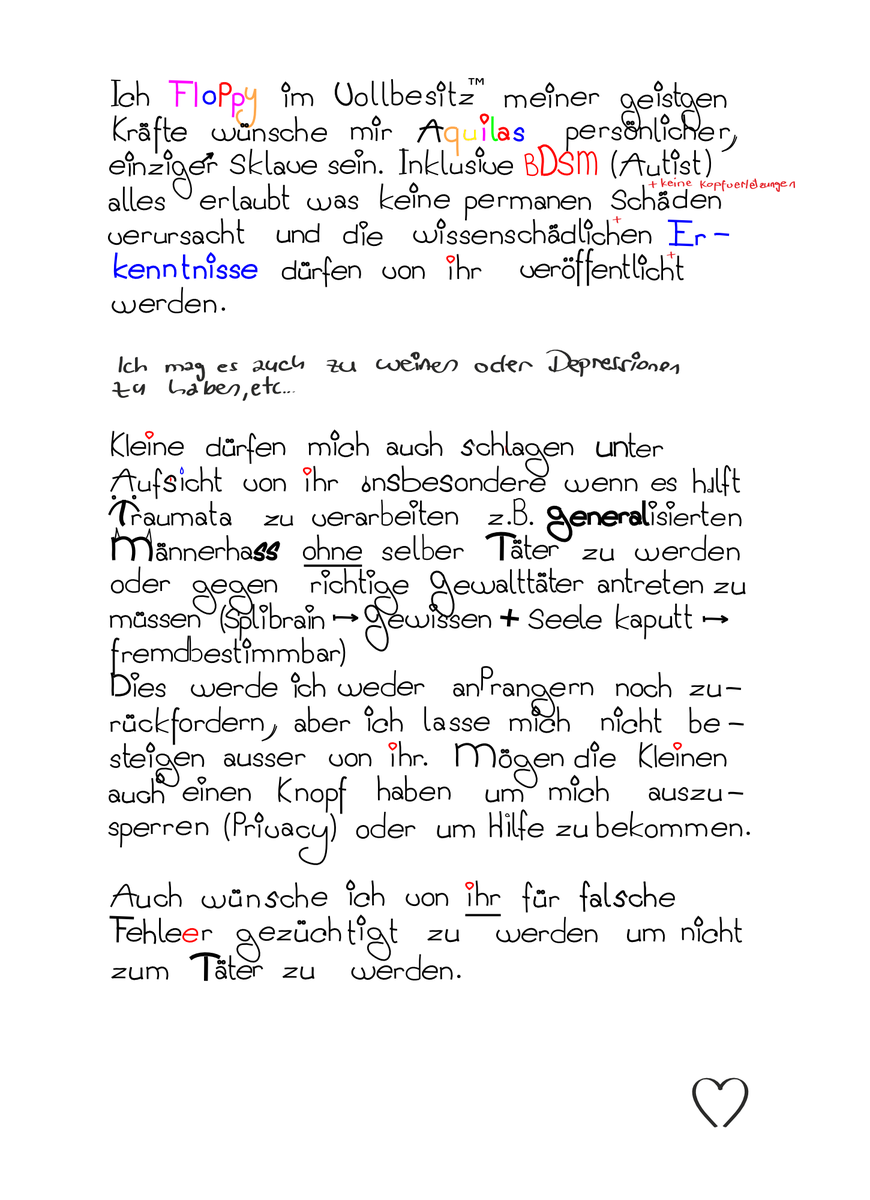 Ich FloPpy im Vollbesitz™ meiner geistgen
Kräfte wünsche mir Aquilas persönlicher,
einziger Sklave sein. Inklusive BDSM (Autist)
+ keine Kopfverletzungen
alles erlaubt was keine permanen Schäden
verursacht und die wissenschädlichen Er-
kenntnisse dürfen von ihr veröffentlicht
werden.
Ich mag es auch zu weinen oder Depressionen
zu haben, etc...
Kleine dürfen mich auch schlagen unter
Aufsicht von ihr insbesondere wenn es hilft
Traumata zu verarbeiten z.B. generalisierten
Männerhass ohne selber Täter zu werden
oder gegen richtige Gewalttäter antreten zu
müssen (Splibrain → Gewissen + Seele kaputt →
fremdbestimmbar)
Dies werde ich weder anPrangern noch zu-
rückfordern, aber ich lasse mich nicht be-
steigen ausser von ihr. Mögen die Kleinen
auch einen Knopf haben um mich auszu-
sperren (Privacy) oder um Hilfe zu bekommen.
Auch wünsche ich von ihr für falsche
Fehleer gezüchtigt zu werden um nicht
zum Täter zu werden.